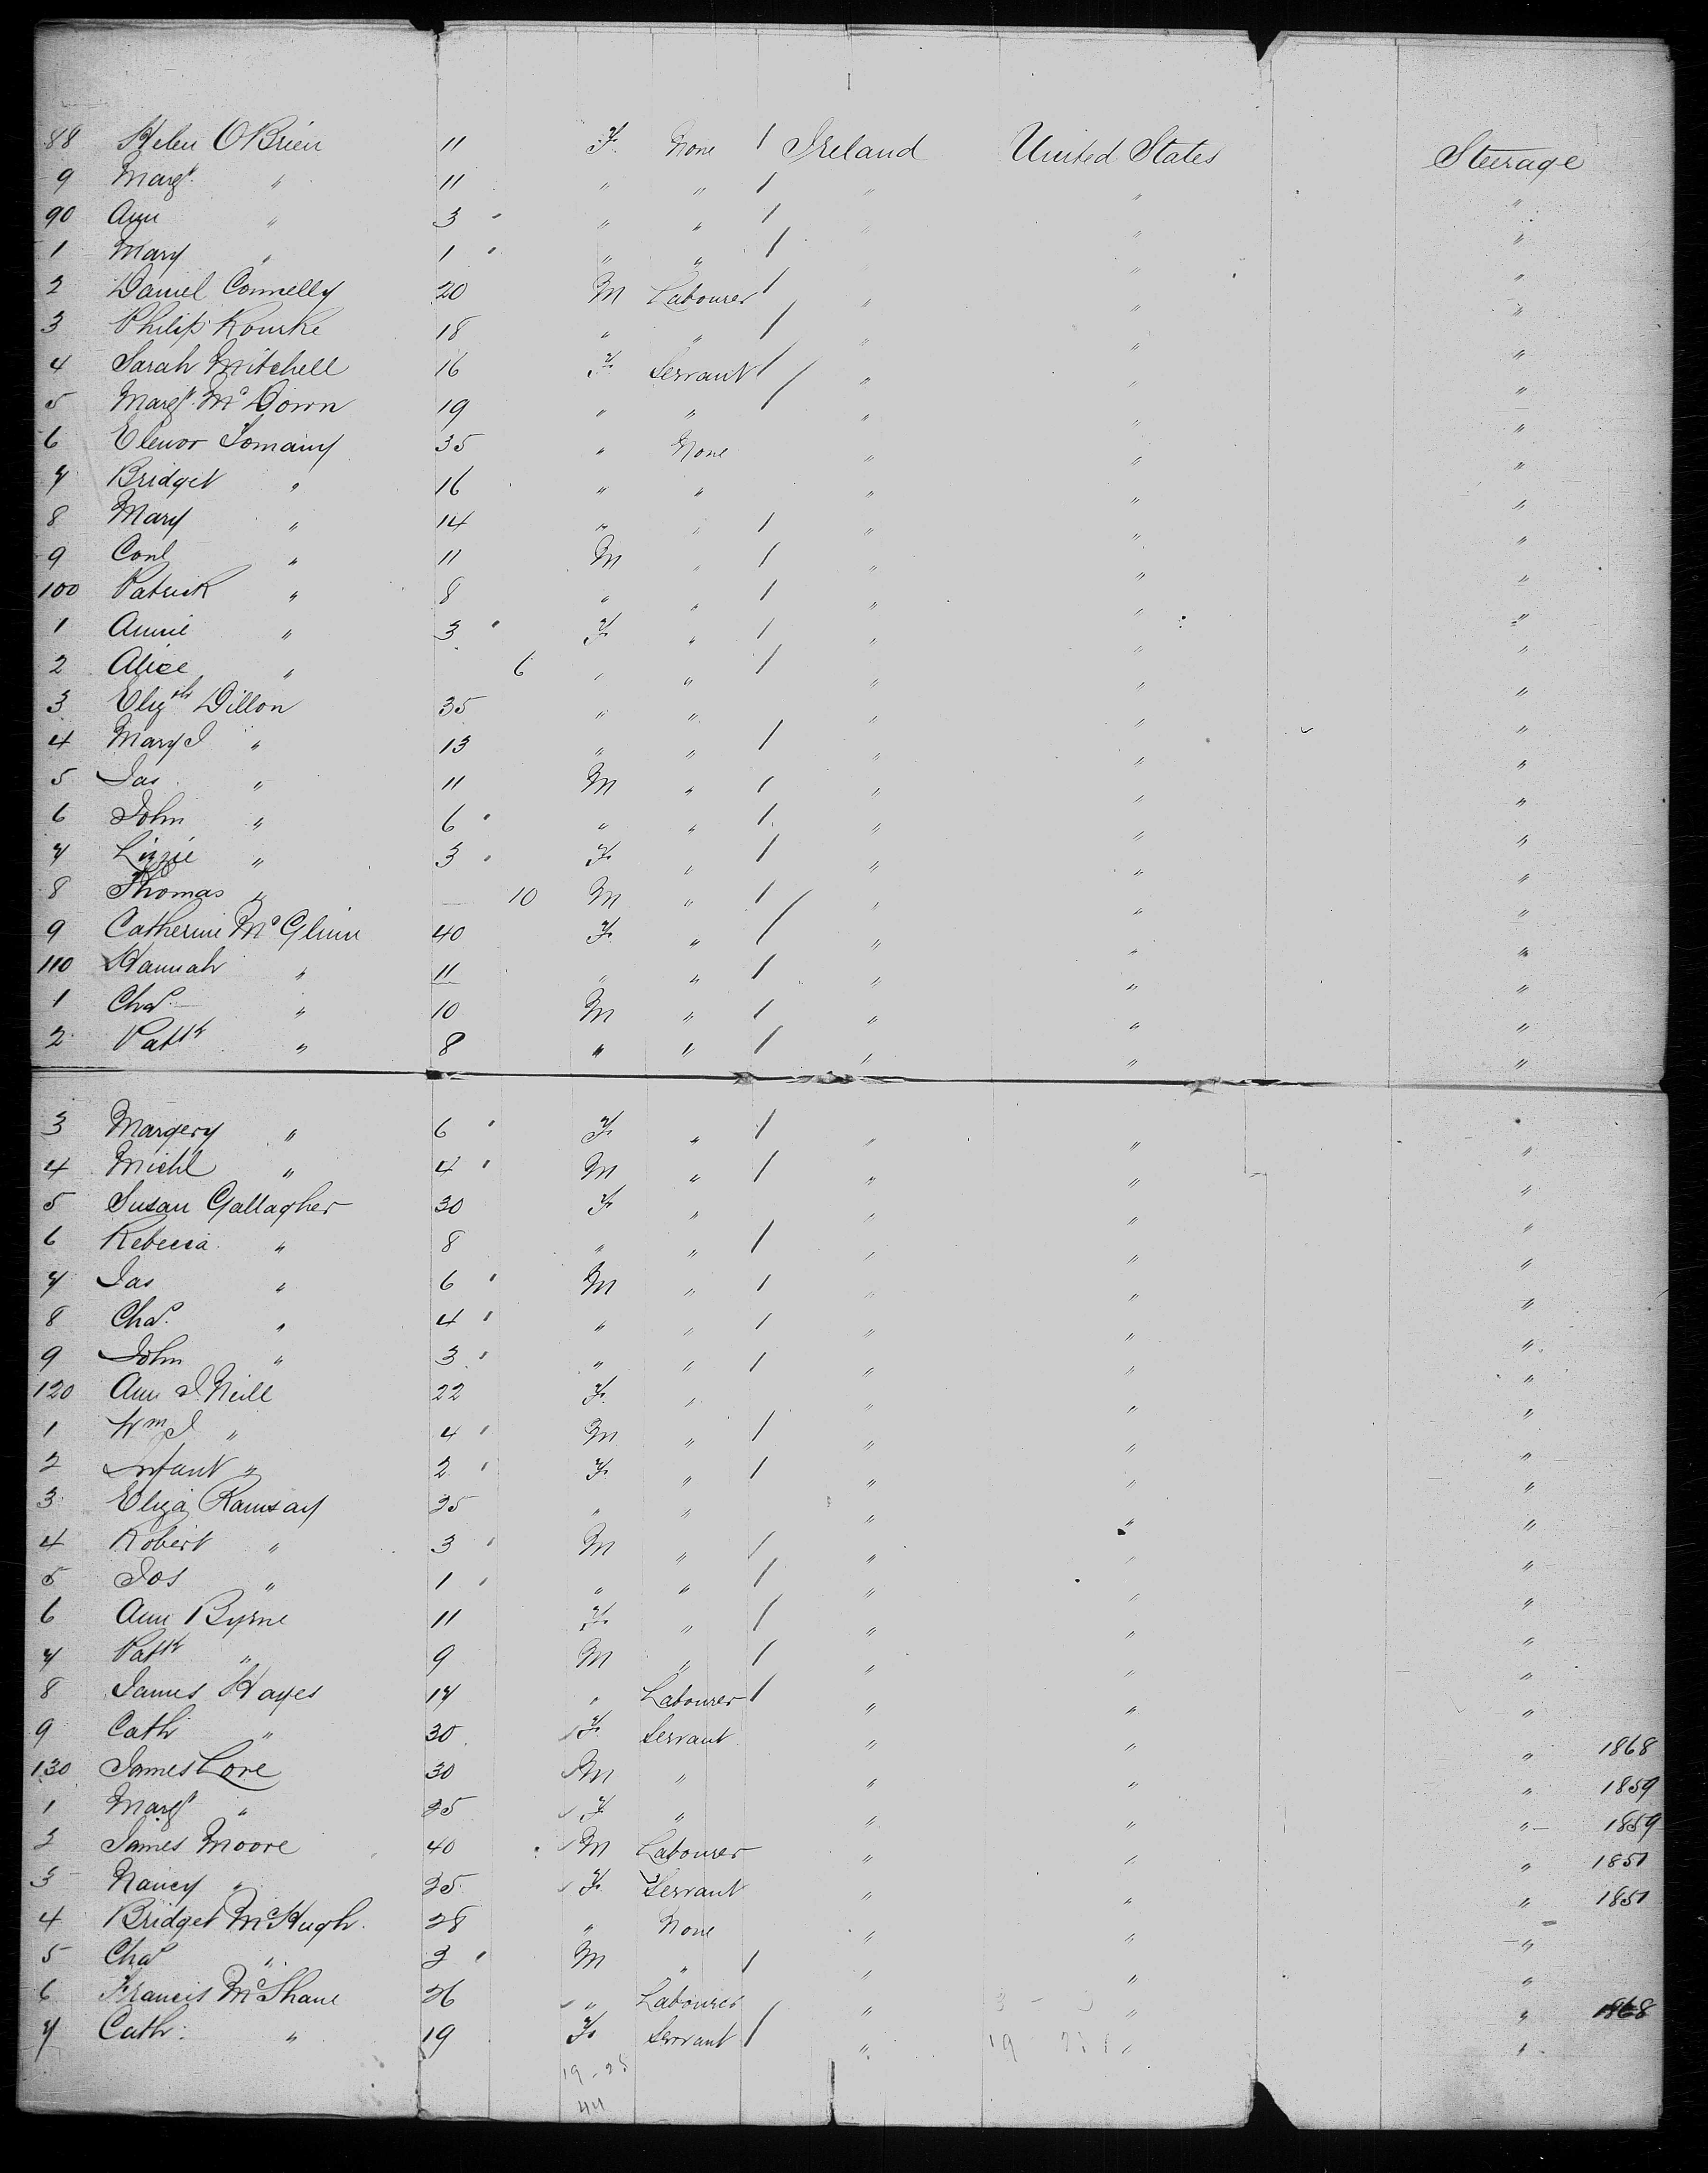 88 Helen OBrien 11 F. None 1 Ireland United States Steerage
9 Margt. " 11 " " 1 " " "
90 Ann " 3 " " 1 " " "
1 Mary " 1 " " 1 " "
2 Daniel Connelly 20 M Labourer 1 " " "
3 Philip Rourke 18 " " 1 " " "
4 Sarah Mitchell 16 F. Servant 1 " " "
5 Margt. McGown 19 " " 1 " " "
6 Elenor 35 " None " " "
7 Bridget " 16 " " " " "
8 Mary " 14 " " 1 " " "
9 Conl " 11 M " 1 " " "
100 Patrick " 8 " " 1 " " "
1 Annie " 3 F. " 1 " " "
2 Alice " 6 " " 1 " " "
3 Elizth Dillon 35 " " " " "
4 Mary J " 13 " " 1 " " "
5 Jas " 11 M " 1 " " "
6 John " 6 " " 1 " " "
7 Lizzie " 3 F. " 1 " " "
8 Thomas " — 10 M " 1 " " "
9 Catherine McGlinn 40 F. " 1 " " "
110 Hannah " 11 " " 1 " " "
1 Chas. " 10 M " 1 " " "
2 Patk " 8 " " 1 " " "
3 Margery " 6 F. " 1 " " "
4 Michl " 4 M " 1 " " "
5 Susan Gallagher 30 F. " " " "
6 Rebecca " 8 " " 1 " " "
7 Jas " 6 M " 1 " " "
8 Chas. " 4 " " 1 " " "
9 John " 3 " " 1 " " "
120 Ann J. Neill 22 F. " " " "
1 Wm J " 4 M " 1 " " "
2 Infant " 2 F. " 1 " " "
3 Eliza Ramsay 25 " " " " "
4 Robert " 3 M " 1 " " "
5 Jos " 1 " " 1 " " "
6 Ann Byrne 11 F. " 1 " " "
7 Patk " 9 M " 1 " " "
8 James Hayes 17 " Labourer 1 " " "
9 Cath " 30 F. Servant " " " 1868
130 James Love 30 M " " " " 1859
1 Margt " 25 F. " " " " 1859
2 James Moore 40 M Labourer " " " 1851
3 Nancy " 25 F. Servant " " " 1851
4 Bridget McHugh 28 " None " " "
5 Chas " 3 M " 1 " " "
6 Francis McShane 26 " Labourer " " " 1868
7 Cath: " 19 F. Servant 1 " " "
19 - 25
44